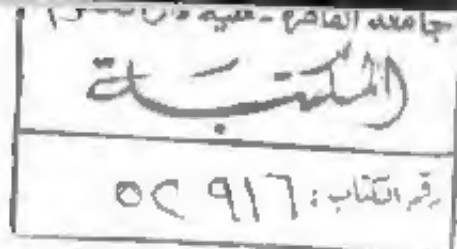 جامعة القاهرة - كلية دار العلوم
المكتبة
رقم الكتاب: ٥٢٩١٦